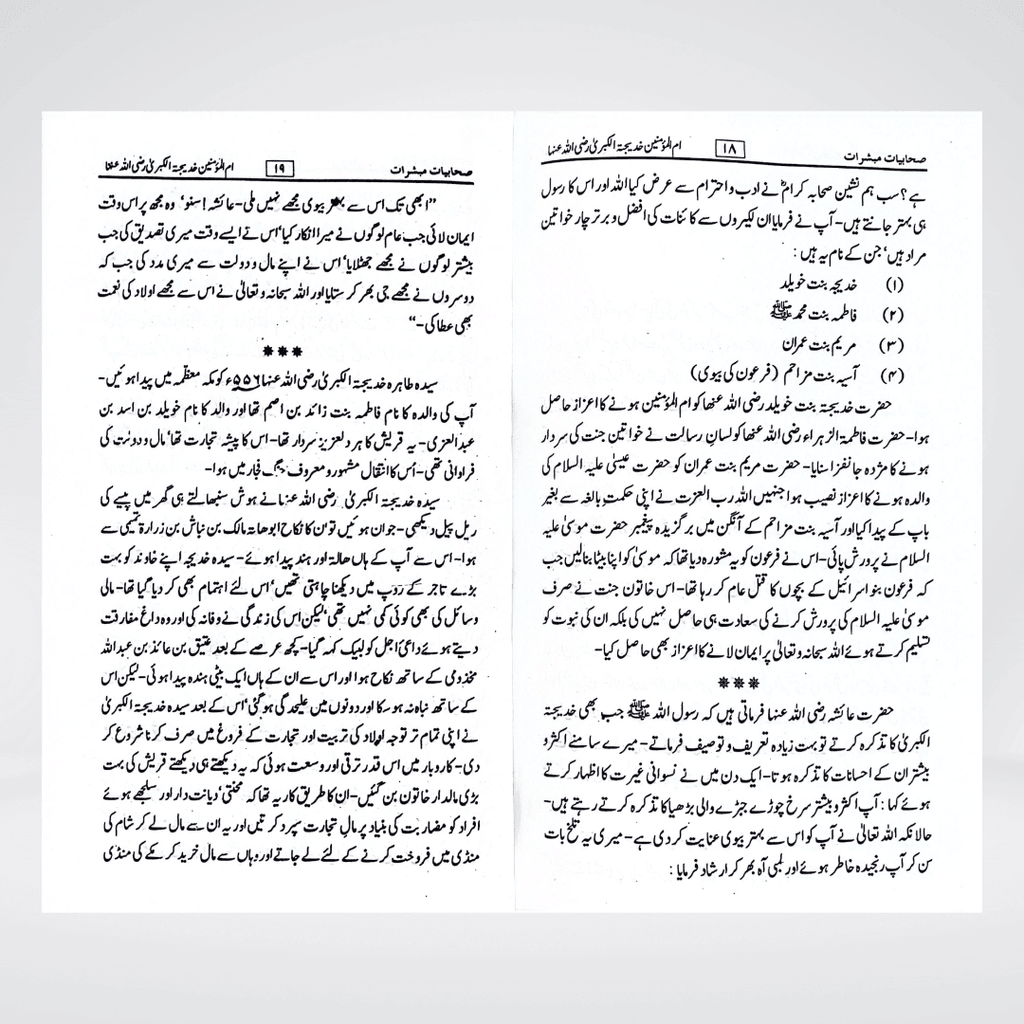 صحابیات مبشرات ۱۸ ام المؤمنین خدیجۃ الکبریٰ رضی اللہ عنہا
ہے؟ سب ہم نشین صحابہ کرامؓ نے ادب و احترام سے عرض کیا اللہ اور اس کا رسول
ہی بہتر جانتے ہیں- آپ نے فرمایا ان لکیروں سے کائنات کی افضل و برتر چار خواتین
مراد ہیں‘ جن کے نام یہ ہیں :
(۱) خدیجہ بنت خویلد
(۲) فاطمہ بنت محمد ﷺ
(۳) مریم بنت عمران
(۴) آسیہ بنت مزاحم (فرعون کی بیوی)
حضرت خدیجۃ بنت خویلد رضی اللہ عنہا کو ام المؤمنین ہونے کا اعزاز حاصل
ہوا- حضرت فاطمۃ الزہراء رضی اللہ عنہا کو لسانِ رسالت نے خواتین جنت کی سردار
ہونے کا مژدہ جانفزا سنایا- حضرت مریم بنت عمران کو حضرت عیسیٰ علیہ السلام کی
والدہ ہونے کا اعزاز نصیب ہوا جنہیں اللہ رب العزت نے اپنی حکمتِ بالغہ سے بغیر
باپ کے پیدا کیا اور آسیہ بنت مزاحم کے آنگن میں برگزیدہ پیغمبر حضرت موسیٰ علیہ
السلام نے پرورش پائی- اس نے فرعون کو یہ مشورہ دیا تھا کہ موسیٰ کو اپنا بیٹا بنالیں جب
کہ فرعون بنو اسرائیل کے بچوں کا قتل عام کر رہا تھا- اس خاتون جنت نے صرف
موسیٰ علیہ السلام کی پرورش کرنے کی سعادت ہی حاصل نہیں کی بلکہ ان کی نبوت کو
تسلیم کرتے ہوئے اللہ سبحانہ و تعالیٰ پر ایمان لانے کا اعزاز بھی حاصل کیا-
***
حضرت عائشہ رضی اللہ عنہا فرماتی ہیں کہ رسول اللہ ﷺ جب بھی خدیجۃ
الکبریٰ کا تذکرہ کرتے تو بہت زیادہ تعریف و توصیف فرماتے- میرے سامنے اکثر و
بیشتر ان کے احسانات کا تذکرہ ہوتا- ایک دن میں نے نسوانی غیرت کا اظہار کرتے
ہوئے کہا : آپ اکثر و بیشتر سرخ چوڑے جبڑے والی بڑھیا کا تذکرہ کرتے رہتے ہیں-
حالانکہ اللہ تعالیٰ نے آپ کو اس سے بہتر بیوی عنایت کر دی ہے- میری یہ تلخ بات
سن کر آپ رنجیدہ خاطر ہوئے اور لمبی آہ بھر کر ارشاد فرمایا :
صحابیات مبشرات ۱۹ ام المؤمنین خدیجۃ الکبریٰ رضی اللہ عنہا
”ابھی تک اس سے بہتر بیوی مجھے نہیں ملی- عائشہ! سنو‘ وہ مجھ پر اس وقت
ایمان لائی جب عام لوگوں نے میرا انکار کیا‘ اس نے ایسے وقت میری تصدیق کی جب
بیشتر لوگوں نے مجھے جھٹلایا‘ اس نے اپنے مال و دولت سے میری مدد کی جب کہ
دوسروں نے مجھے جی بھر کر ستایا اور اللہ سبحانہ و تعالیٰ نے اس سے مجھے اولاد کی نعمت
بھی عطا کی-“
***
سیدہ طاہرہ خدیجۃ الکبریٰ رضی اللہ عنہا ۵۵۶ء کو مکہ معظمہ میں پیدا ہوئیں-
آپ کی والدہ کا نام فاطمہ بنت زائد بن اصم تھا اور والد کا نام خویلد بن اسد بن
عبدالعزی- یہ قریش کا ہر دلعزیز سردار تھا- اس کا پیشہ تجارت تھا‘ مال و دولت کی
فراوانی تھی- اُس کا انتقال مشہور و معروف جنگ فجار میں ہوا-
سیدہ خدیجۃ الکبریٰ رضی اللہ عنہا نے ہوش سنبھالتے ہی گھر میں پیسے کی
ریل پیل دیکھی- جوان ہوئیں تو ان کا نکاح ابوھالہ مالک بن نباش بن زرارۃ تمیمی سے
ہوا- اس سے آپ کے ہاں ھالہ اور ہند پیدا ہوئے- سیدہ خدیجہ اپنے خاوند کو بہت
بڑے تاجر کے روپ میں دیکھنا چاہتی تھیں‘ اس لئے اہتمام بھی کر دیا گیا تھا- مالی
وسائل کی بھی کوئی کمی نہیں تھی‘ لیکن اس کی زندگی نے وفا نہ کی اور وہ داغ مفارقت
دیتے ہوئے داعیٔ اجل کو لبیک کہہ گیا- کچھ عرصے کے بعد عتیق بن عائذ بن عبداللہ
مخذومی کے ساتھ نکاح ہوا اور اس سے ان کے ہاں ایک بیٹی ہندہ پیدا ہوئی- لیکن اس
کے ساتھ نباہ نہ ہو سکا اور دونوں میں علیحدگی ہو گئی‘ اس کے بعد سیدہ خدیجۃ الکبریٰ
نے اپنی تمام تر توجہ اولاد کی تربیت اور تجارت کے فروغ میں صرف کرنا شروع کر
دی- کاروبار میں اس قدر ترقی اور وسعت ہوئی کہ یہ دیکھتے ہی دیکھتے قریش کی بہت
بڑی مالدار خاتون بن گئیں- ان کا طریق کار یہ تھا کہ محنتی‘ دیانت دار اور سلجھے ہوئے
افراد کو مضاربت کی بنیاد پر مالِ تجارت سپرد کرتیں اور یہ ان سے مال لے کر شام کی
منڈی میں فروخت کرنے کے لئے لے جاتے اور وہاں سے مال خرید کر مکے کی منڈی